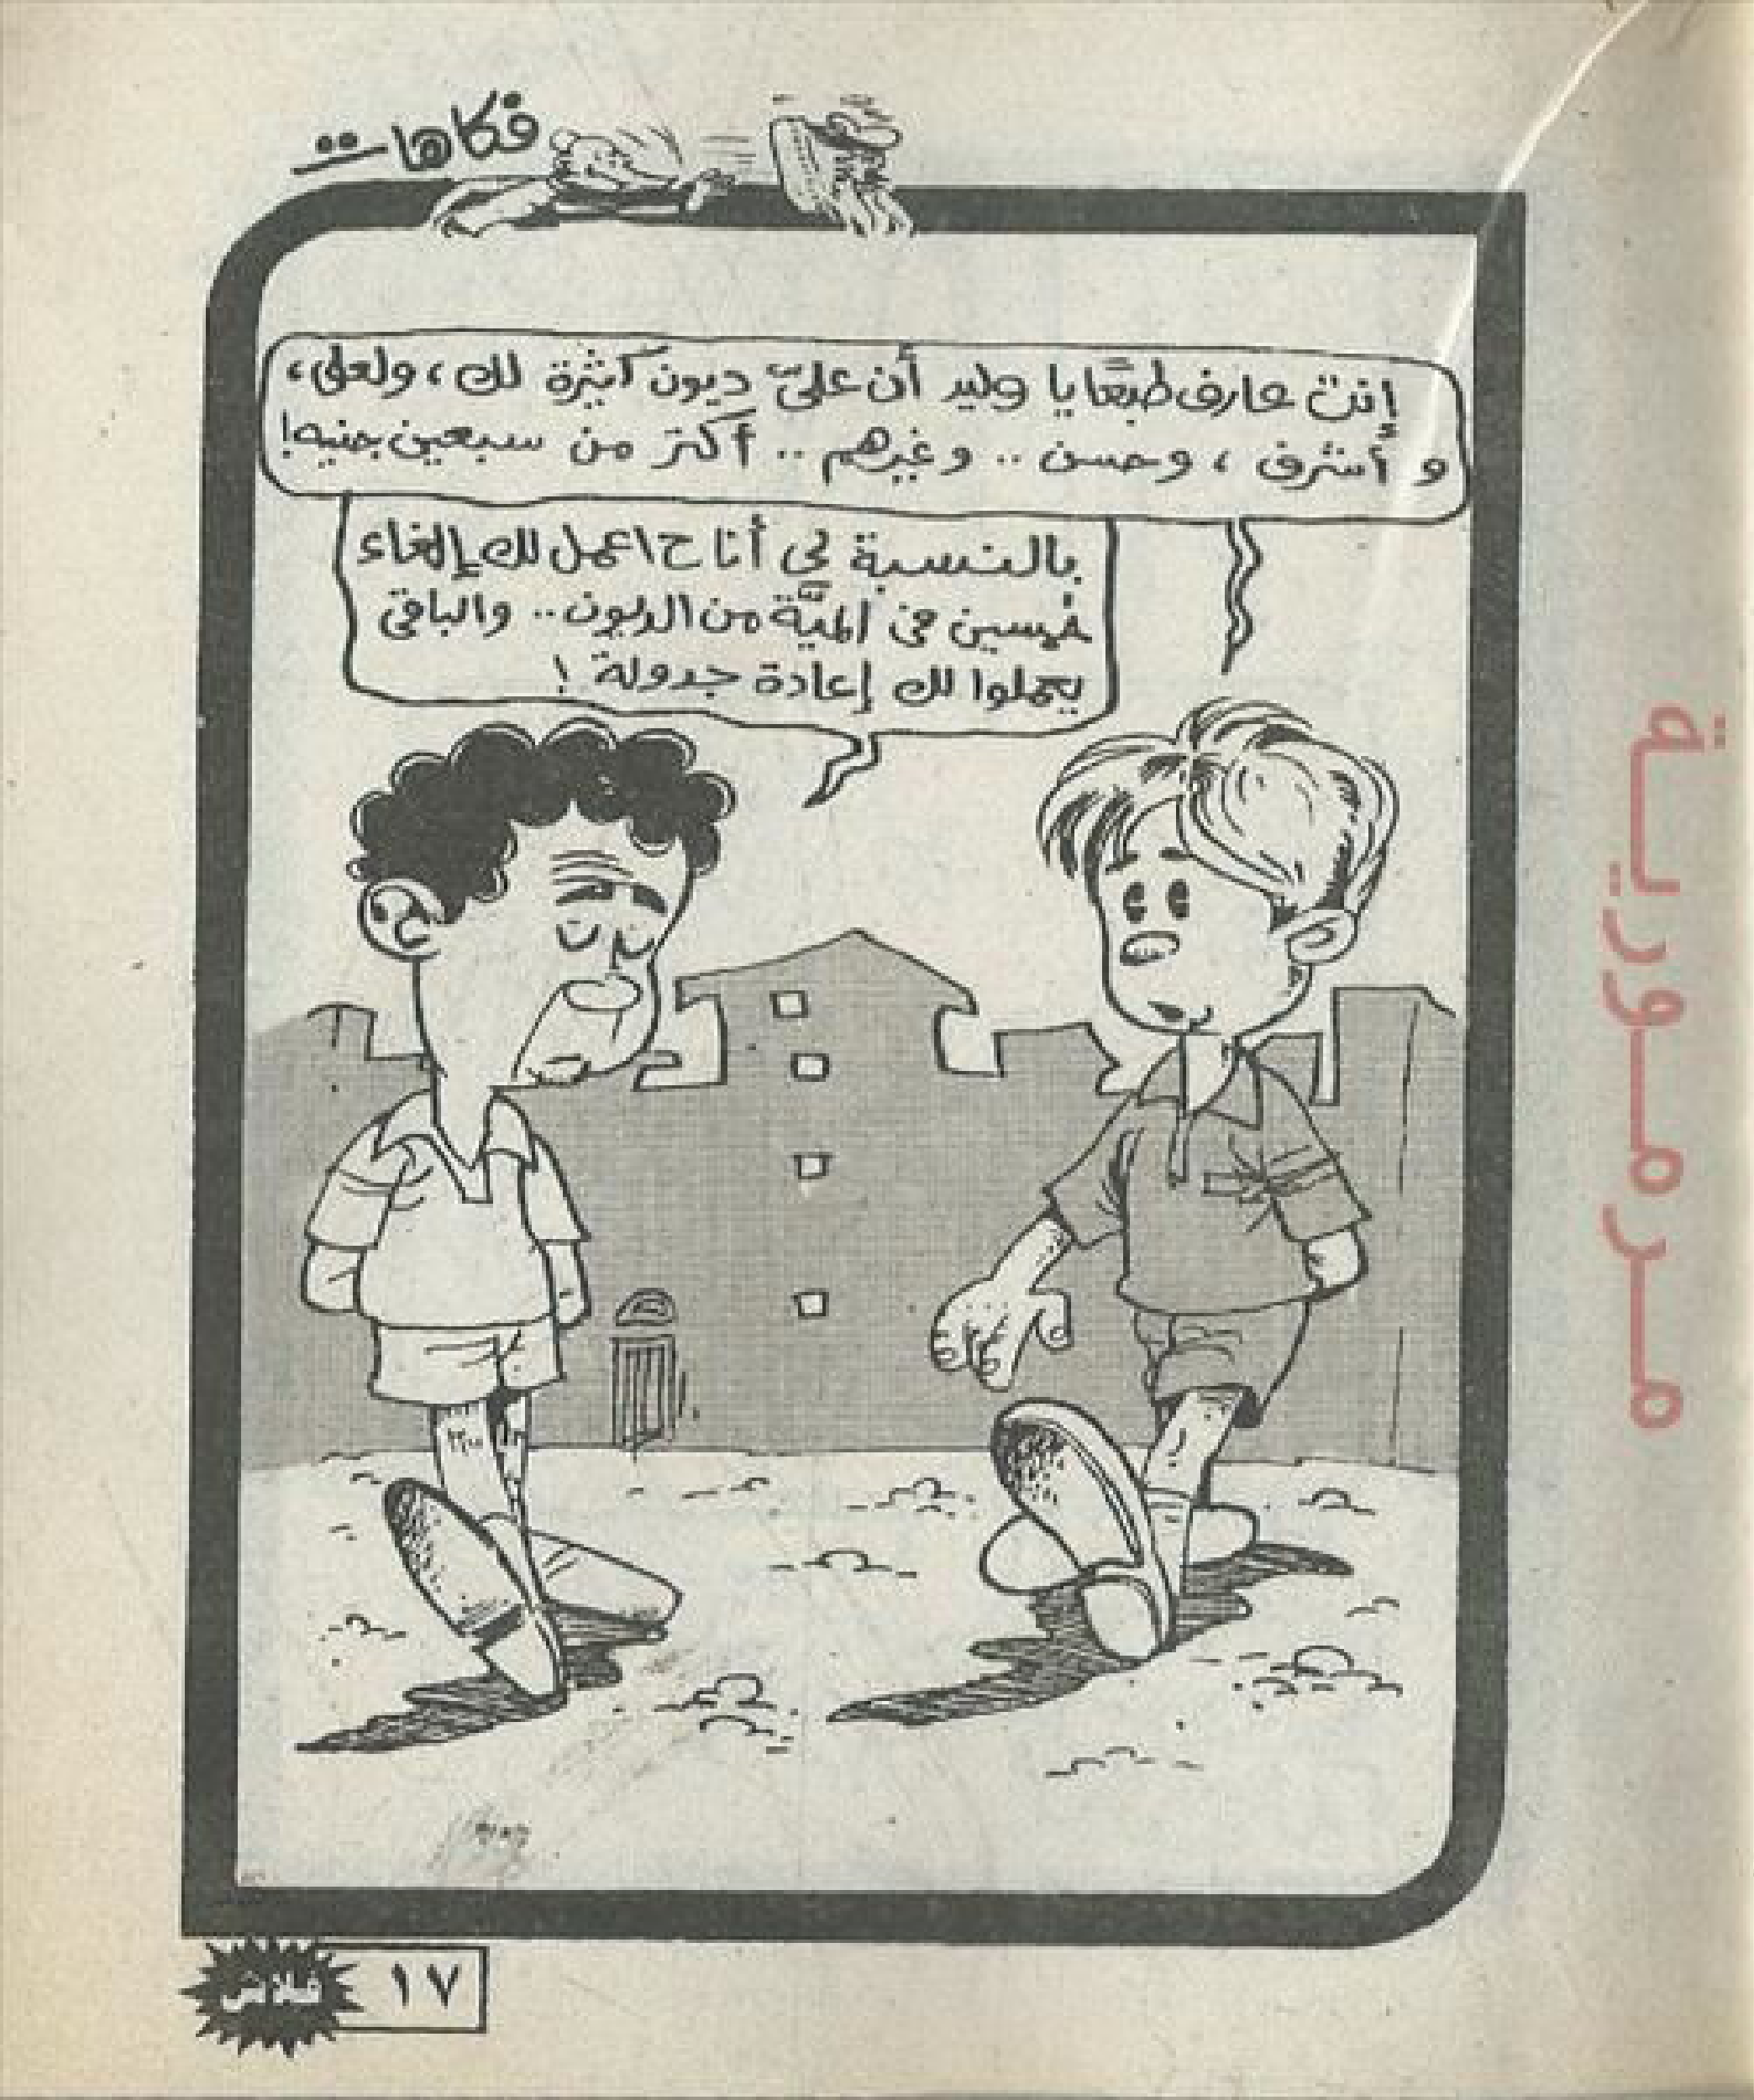 فكاهات
إنت عارف طبعًا يا وليد أن عليّ ديون كثيرة لك، ولعلى،
و أشرف، وحسن .. وغيرهم .. أكتر من سبعين جنيه!
بالنسبة لي أنا ح اعمل لك إلغاء
خمسين في الميَّة من الديون .. والباقي
يعملوا لك إعادة جدولة !
مرمورية
١٧
فلاش